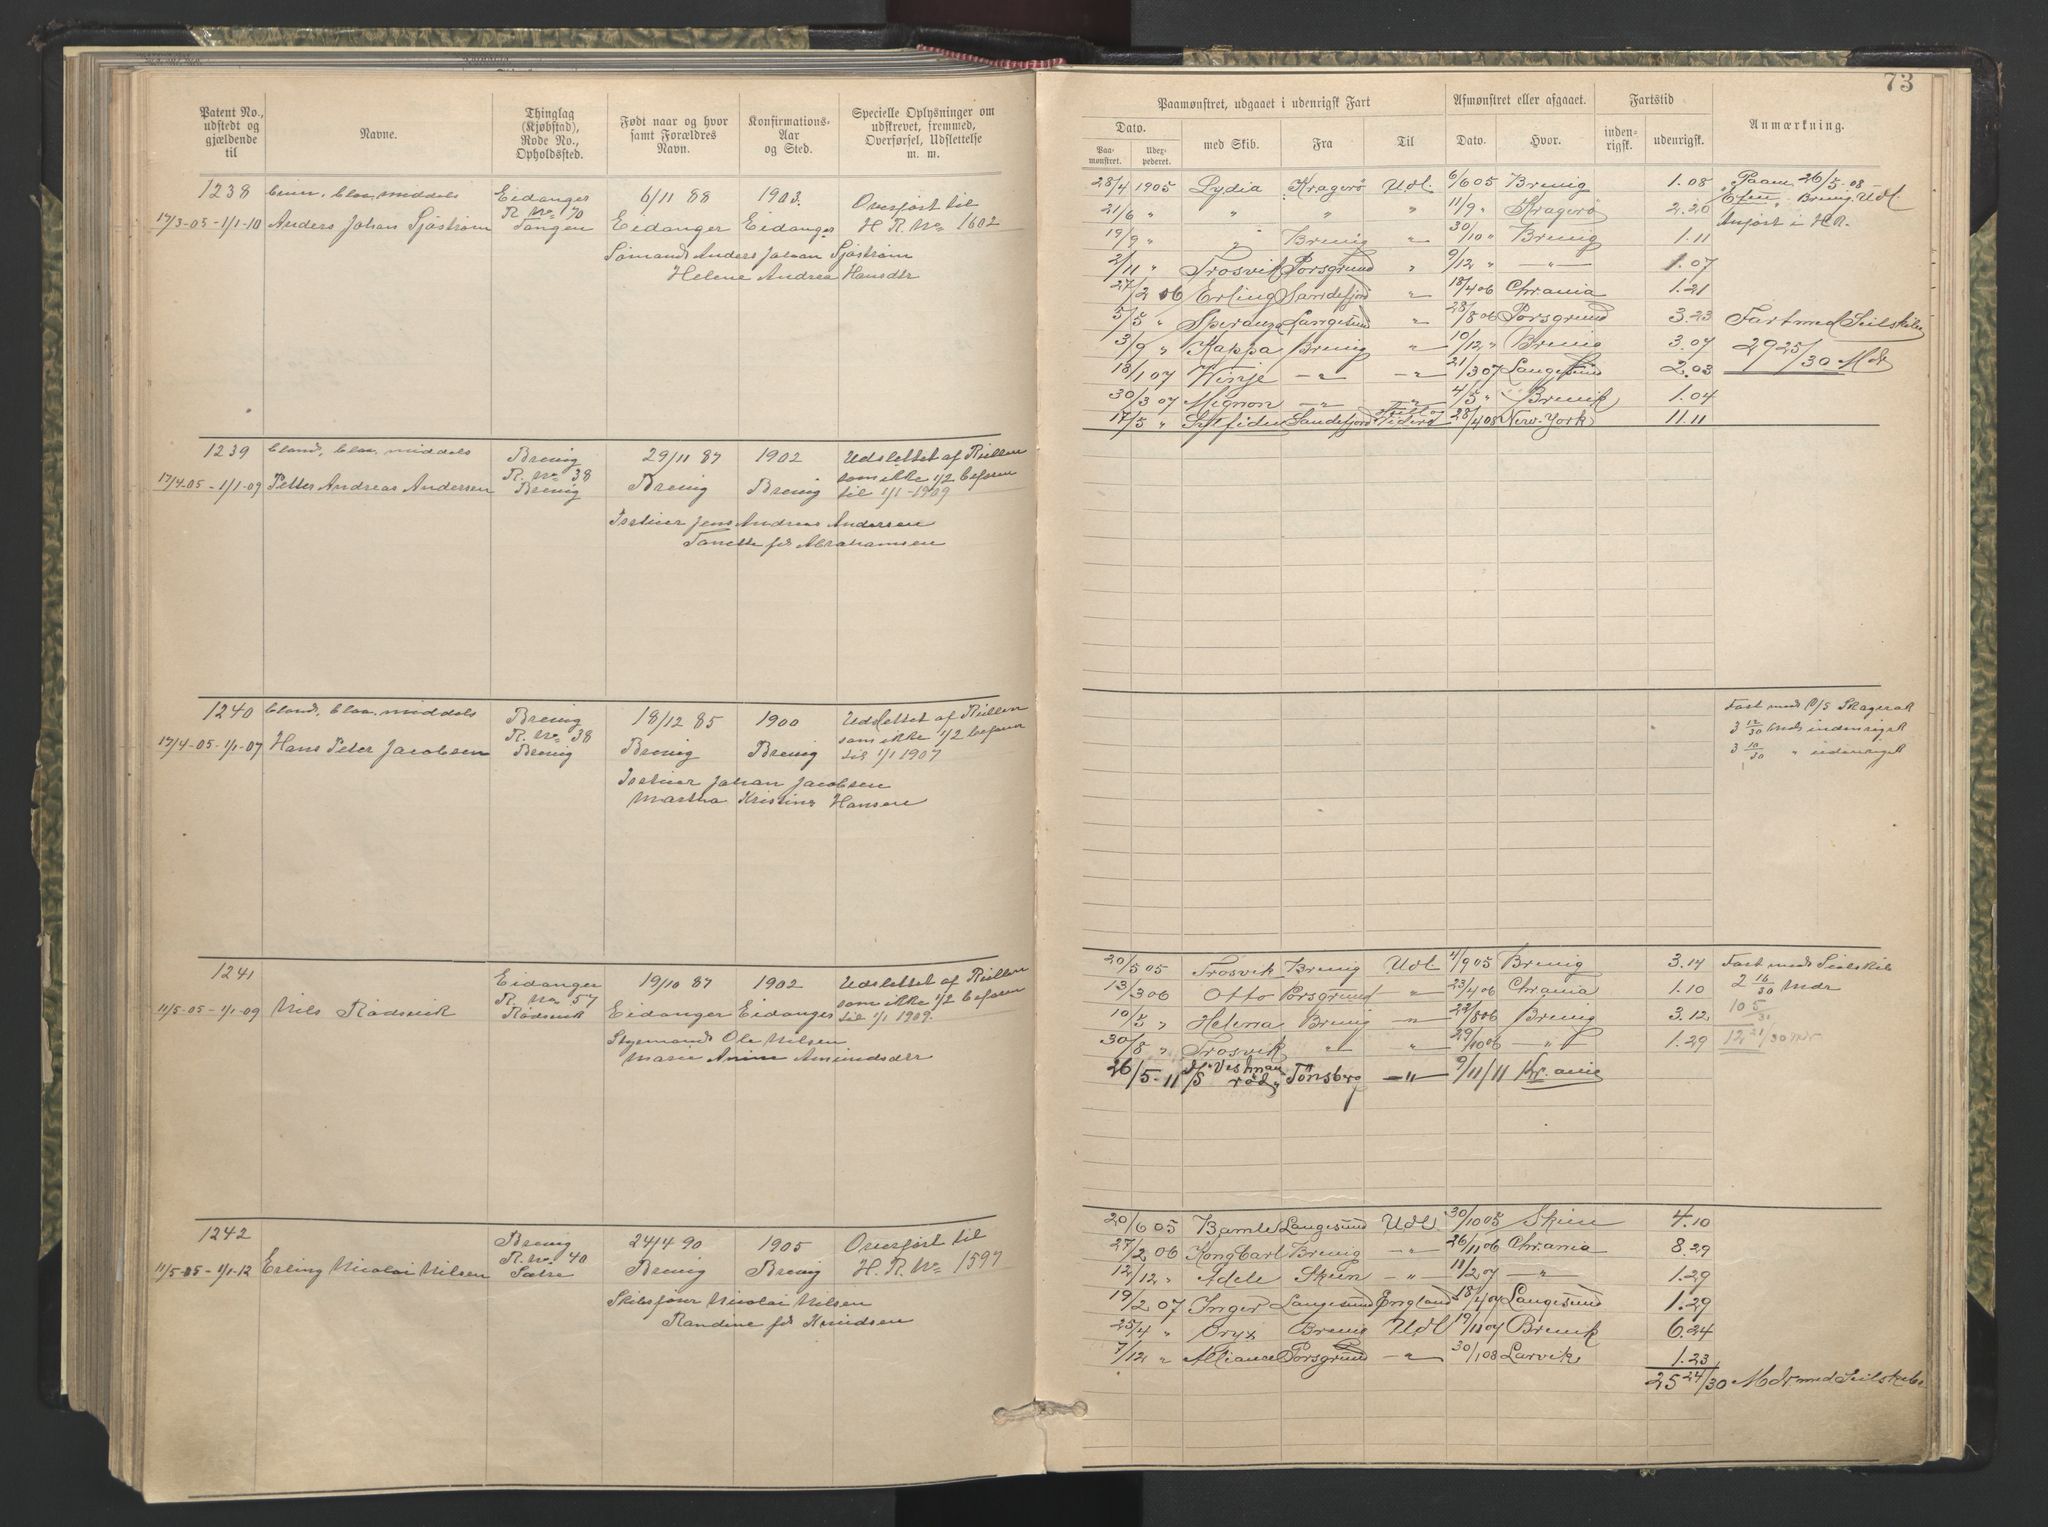 Patent No., udstedt og gjældende til
Navne.
Thinglag (Kjøbstad), Rode No., Opholdssted.
Født naar og hvor samt Forældres Navn.
Konfirmations-Aar og Sted.
Specielle Oplysninger om udskrevet, fremmed, Overførsel, Udslettelse m. m.
1238
17/3-05-1/1-10 Anders Johan Sjøstrøm
Eidanger
R. No 70
Tangen
6/11 88
Eidanger
1903.
Eidanger
Overført til
H. R. No 1602
Sømand Anders Johan Sjøstrøm
Helene Andrea Hansdtr
1239 blond, blaa, middels
17/4-05-1/1-09 Petter Andreas Andersen
Brevig
R. No 38
Brevig
29/11 87
Brevig
1902
Brevig
Udslettet af Rullen
som ikke 1/2 befaren
til 1/1-1909
Jens Andreas Andersen
Tomette fdt Abrahamsen
1240 blond, blaa, middels
17/4-05-1/1-07 Hans Peter Jacobsen
Brevig
R. No 38
Brevig
18/12 85
Brevig
1900
Brevig
Udslettet af Rullen
som ikke 1/2 befaren
til 1/1 1907
Johan Jacobsen
Martha Kristine Hansen
1241
11/5-05-1/1-09 Nils Rødsvik
Eidanger
R. No 57
Rødsvik
19/10 87
Eidanger
1902
Eidanger
Udslettet af Rullen
som ikke 1/2 befaren
til 1/1 1909.
Styrmand Ole Nilsen
Maren Amundsdtr
1242
11/5-05-1/1-12 Erling Nicolai Nilsen
Brevig
R. No 40
24/4 90
Brevig
1905
Brevig
Overført til
H. R. No 1597
Skibsfører Nicolai Nilsen
Randine fdt Knudsen
73
Paamønstret, udgaaet i udenrigsk Fart
Afmønstret eller afgaaet.
Fartstid
Anmærkning.
Dato.
Paamønstret.
Udexpederet.
med Skib.
Fra
Til
Dato.
Hvor.
indenrigsk.
udenrigsk.
28/4 1905 Lydia Kragerø Udl. 6/6 05 Brevig 1.08 Paam 26/5-08
21/6 " " " " 11/9 " Kragerø 2.20 Brevig Udl.
Anført i H.R.
19/9 " " Brevig " 30/10 " Brevig 1.11
2/11 " Frosvik Porsgrund " 9/12 " —"— 1.07
27/2 06 Erling Sandefjord " 18/4 06 Chrania 1.21
5/5 " Speranza Langesund " 28/8 06 Porsgrund 3.23 Fart med Seilskibe
3/9 " Kappa Brevig " 10/12 " Brevig 3.07 29 25/30 Mdr
18/1 07 Winje —"— —"— 21/3 07 Langesund 2.03
30/3 07 Mignon —"— " 4/5 " Brevik 1.04
17/5 " Sylfiden Sandefjord 28/4 08 New-York 11.11
Fart med D/S Skagerak
3 12/30 Mdr indenrigsk
3 10/30 " udenrigsk
20/5 05 Frosvik Brevig Udl. 4/9 05 Brevig 3.14 Fart med Seilskib
13/3 06 Otto Porsgrund " 23/4 06 Chrania 1.10 2 16/30 Mdr
10/5 " Helena Brevig —"— 22/8 06 Brevig 3.12 10 5/30
30/8 " Frosvik " " 29/10 06 —"— 1.29 12 21/30 Mdr
26/5-11 D/S "Vestmanrød" Tönsberg —"— 9/11/11 Kr.ania
20/6 05 Bamle Langesund Udl 30/10 05 Skien 4.10
27/2 06 Kong Carl Brevig —"— 26/11 06 Chrania 8.29
12/12 " Adele Skien —"— 11/2 07 —"— 1.29
19/2 07 Inger Langesund England 18/4 07 Langesund 1.29
25/4 " Oryx Brevig Udl 19/11 07 Brevik 6.24
7/12 " Alliance Porsgrund —"— 30/1 08 Larvik 1.23
25 24/30 Mdr med Seilskibe